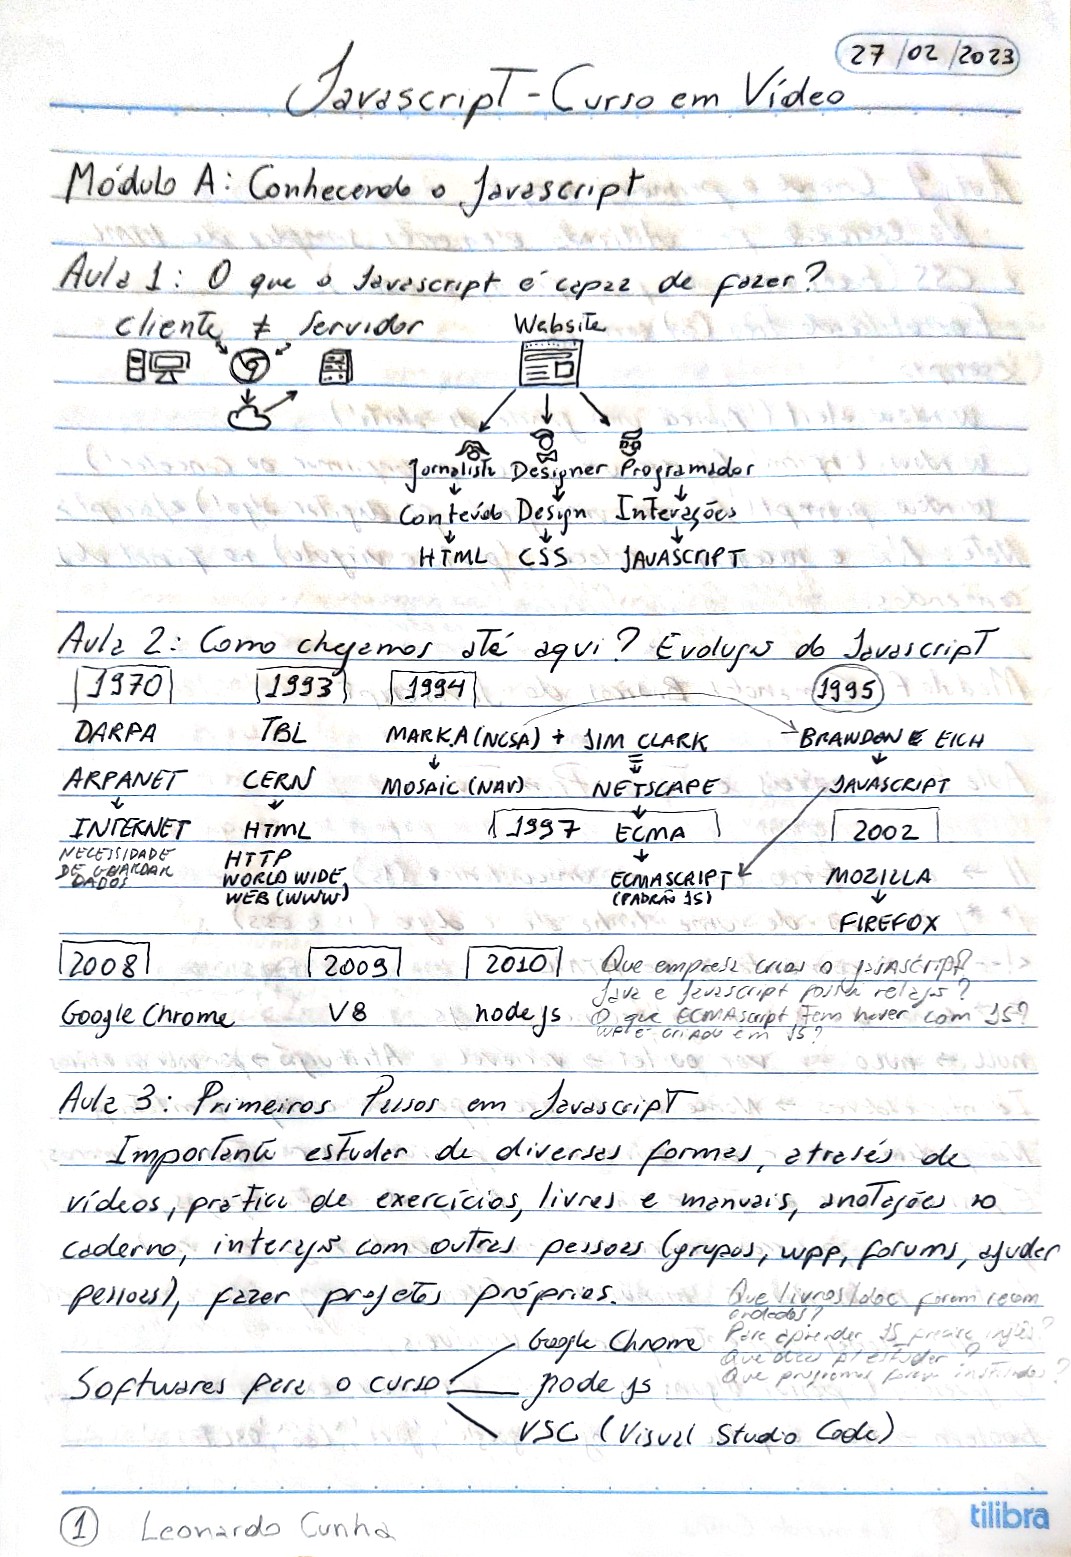 27/02/2023
Javascript - Curso em Vídeo
Módulo A: Conhecendo o Javascript
Aula 1: O que o Javascript é capaz de fazer?
Cliente ≠ Servidor
Website
Jornalista Designer Programador
Conteúdo Design Interações
HTML CSS JAVASCRIPT
Aula 2: Como chegamos até aqui? Evolução do Javascript
1970 1993 1994 1995
DARPA TBL MARK.A (NCSA) + JIM CLARK BRANDON E EICH
ARPANET CERN MOSAIC (NAV) NETSCAPE JAVASCRIPT
INTERNET HTML 1997 ECMA 2002
NECESSIDADE DE GUARDAR DADOS
HTTP
WORLD WIDE
WEB (WWW)
ECMASCRIPT
(PADRÃO JS)
MOZILLA
FIREFOX
2008 2009 2010
Google Chrome V8 node js
Que empresa criou o javascript?
Java e Javascript possui relação?
O que ECMAscript tem haver com JS?
é criado em JS?
Aula 3: Primeiros Passos em Javascript
Importante estudar de diversas formas, através de
vídeos, prática de exercícios, livros e manuais, anotações no
caderno, interação com outras pessoas (grupos, wpp, foruns, ajudar
pessoas), fazer projetos próprios.
Que livros/doc foram recom
endados?
Para aprender JS preciso inglês?
Que dicas p/ estudar?
Que programas foram instalados?
Softwares para o curso
Google Chrome
node js
VSC (Visual Studio Code)
1 Leonardo Cunha
tilibra